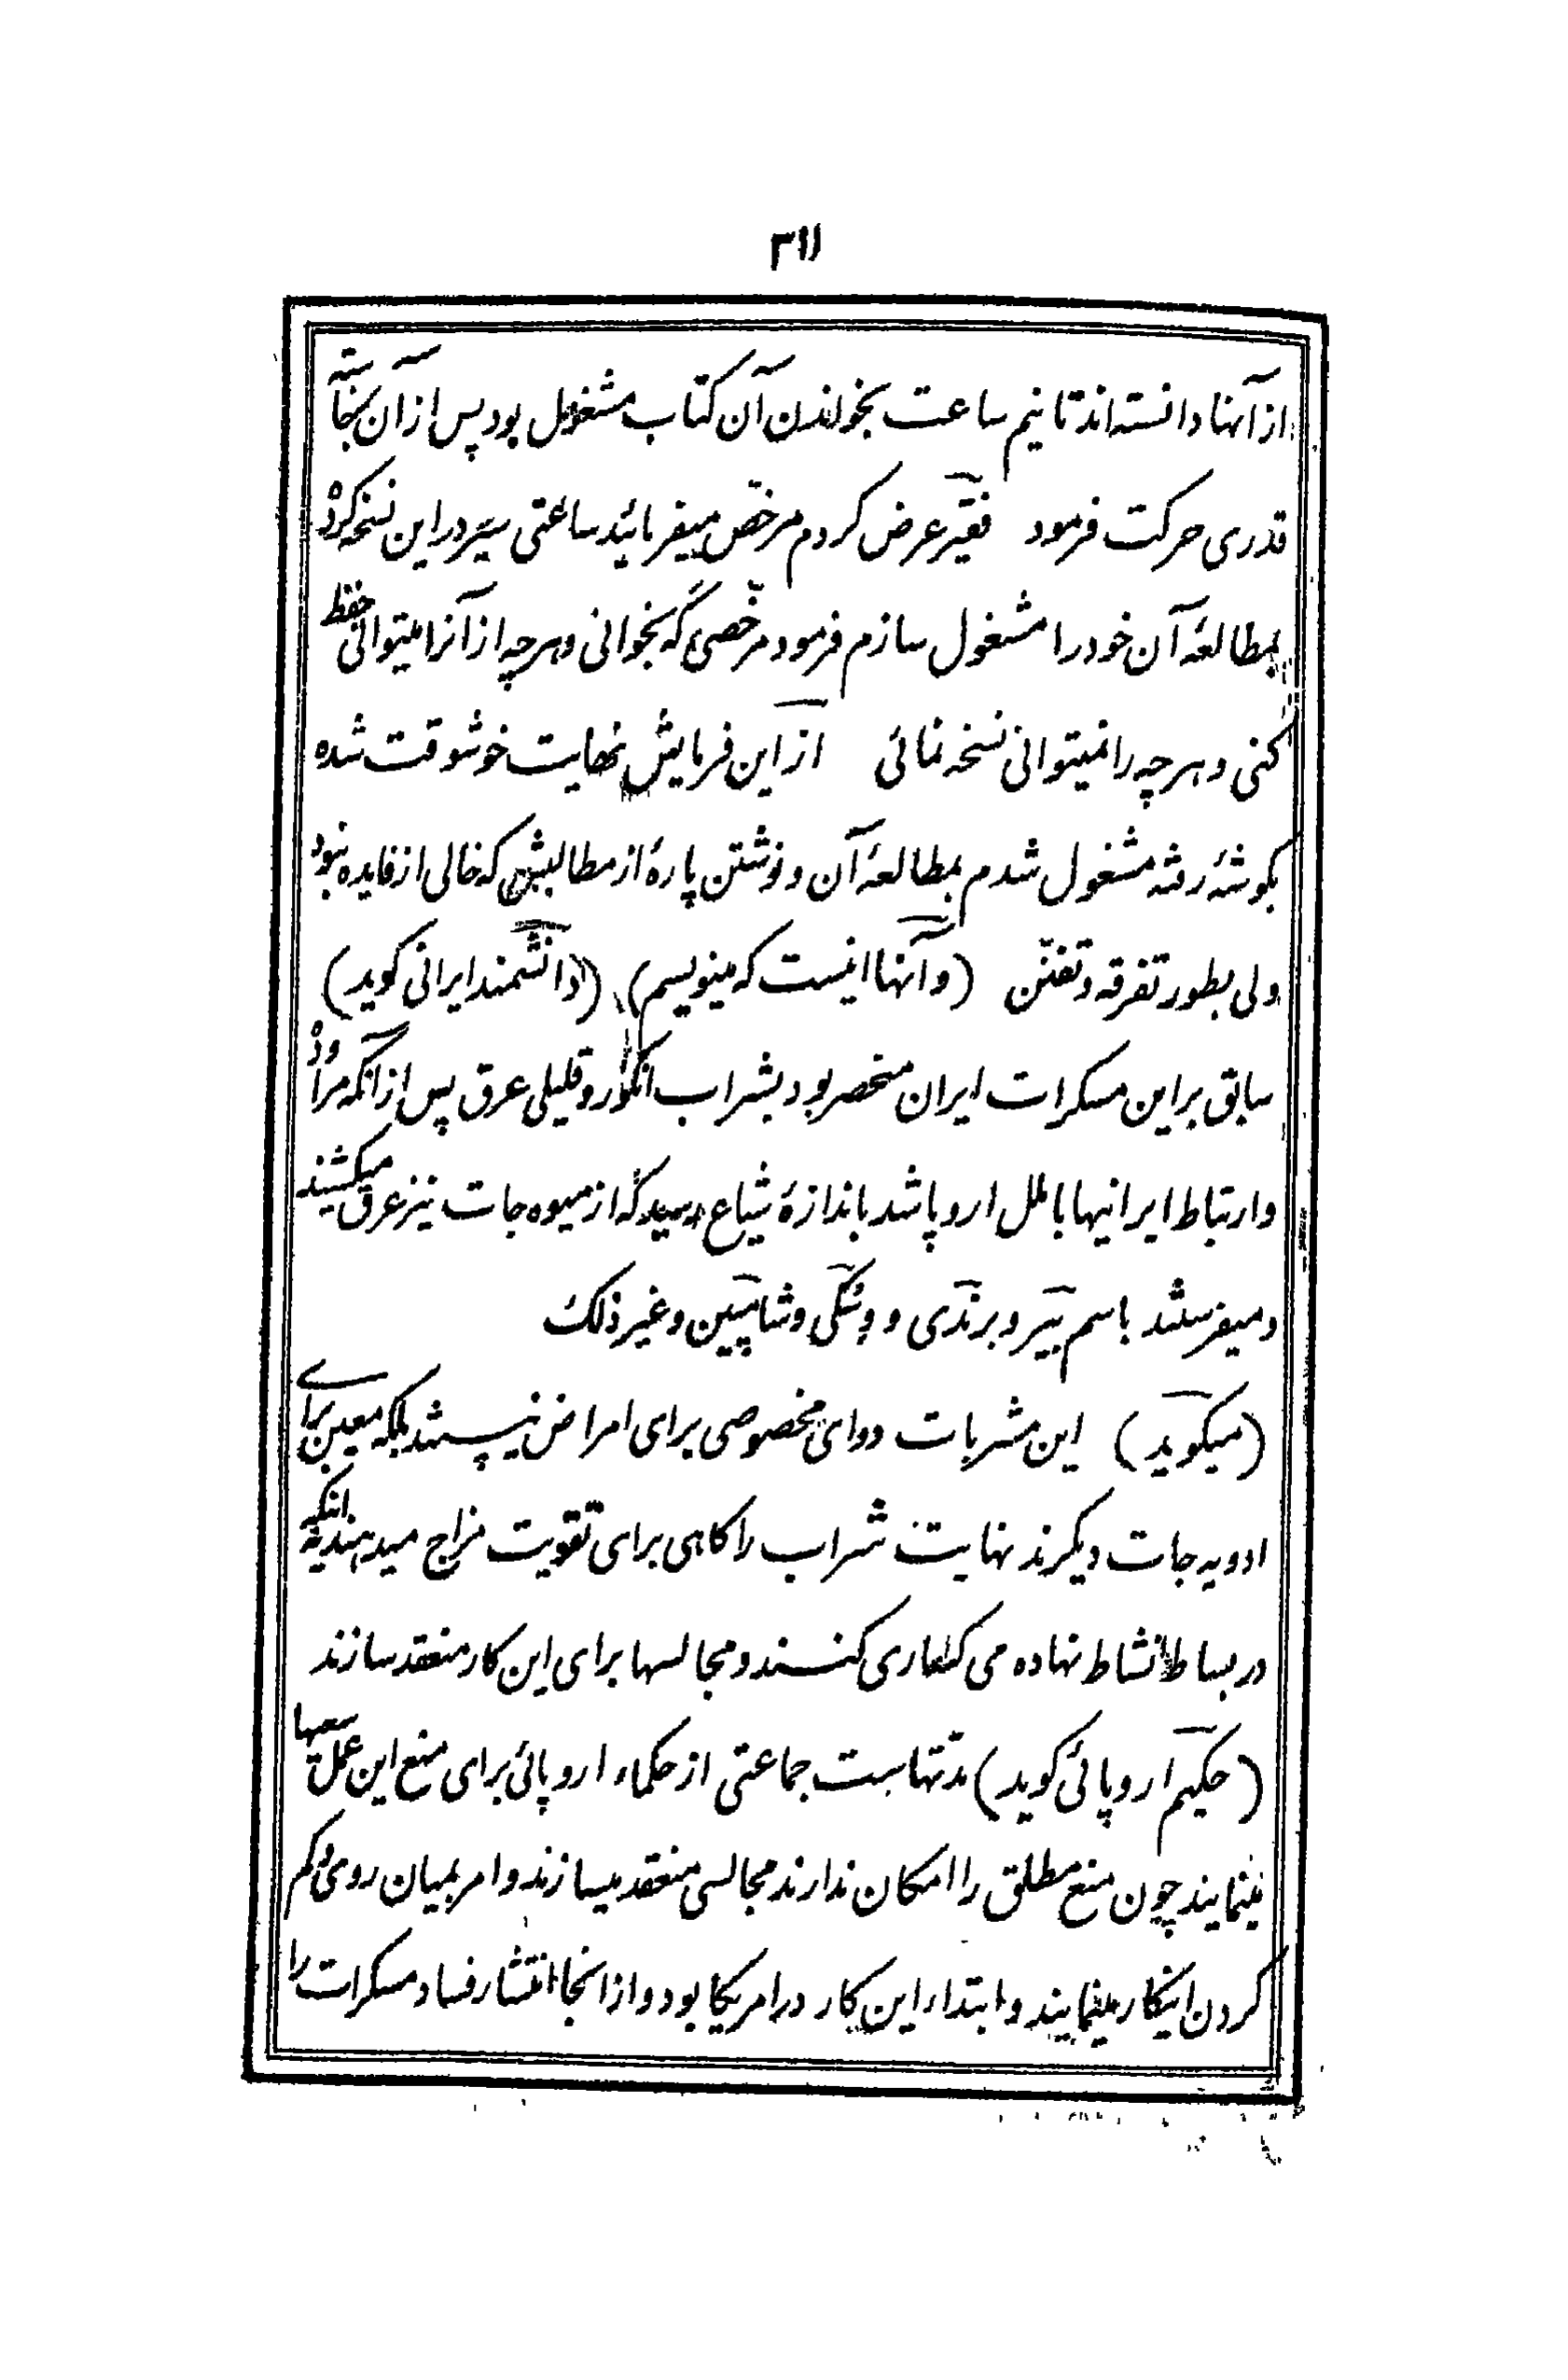 ۳۱۱
از آنها دانسته‌اند تا نیم ساعت بخواندن آن کتاب مشغول بود پس از آن
قدری حرکت فرمود فقیر عرض کردم مرخّص میفرمائید ساعتی سیر در این نسخه کرده
بمطالعهٔ آن خود را مشغول سازم فرمود مرخّصی که بخوانی و هر چه از آنرا میتوانی حفظ
کنی و هر چه را نمیتوانی نسخه نمائی از این فرمایش نهایت خوشوقت شده
بگوشهٔ رفته مشغول شدم بمطالعهٔ آن و نوشتن پارهٔ از مطالبش که خالی از فایده نبود
ولی بطور تفرقه و تفنّن (و آنها اینست که مینویسم) (دانشمند ایرانی کوید)
سابق بر این مسکرات ایران منحصر بود بشراب انکور و قلیلی عرق پس از آنکه مراوده
و ارتباط ایرانیها با ملل اروپا شد باندازهٔ شیاع رسید که از میوه جات نیز عرق میکشند
و میفرستند باسم بیر و برندی و وسکی و شامپین و غیر ذلک
(میکوید) این مشربات دوای مخصوصی برای امراض نیستند بلکه معین برای
ادویه جات دیکرند نهایت شراب را کاهی برای تقویت مزاج میدهند نه اینکه
در بساط نشاط نهاده می کساری کنند و مجالسها برای این کار منعقد سازند
(حکیم اروپائی کوید) مدّتهاست جماعتی از حکماء اروپائی برای منع این عمل سعیها
مینمایند چون منع مطلق را امکان ندارند مجالسی منعقد میسازند و امر بمیان روی و کم
کردن اینکار مینمایند و ابتداء این کار در امریکا بود و از انجا انتشار فساد مسکرات را